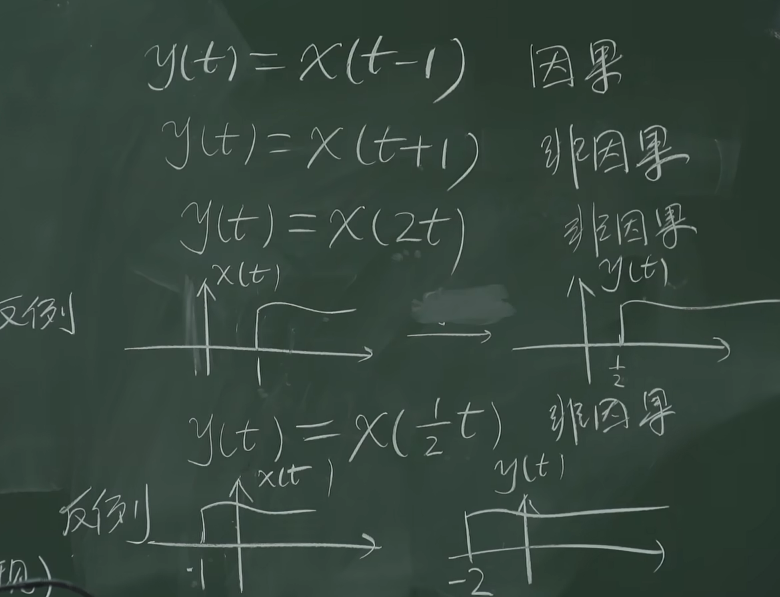 y(t)=x(t-1) 因果
y(t)=x(t+1) 非因果
y(t)=x(2t) 非因果
反例 x(t) 1 y(t) 1/2
y(t)=x(1/2t) 非因果
反例 x(t) -1 y(t) -2
现)